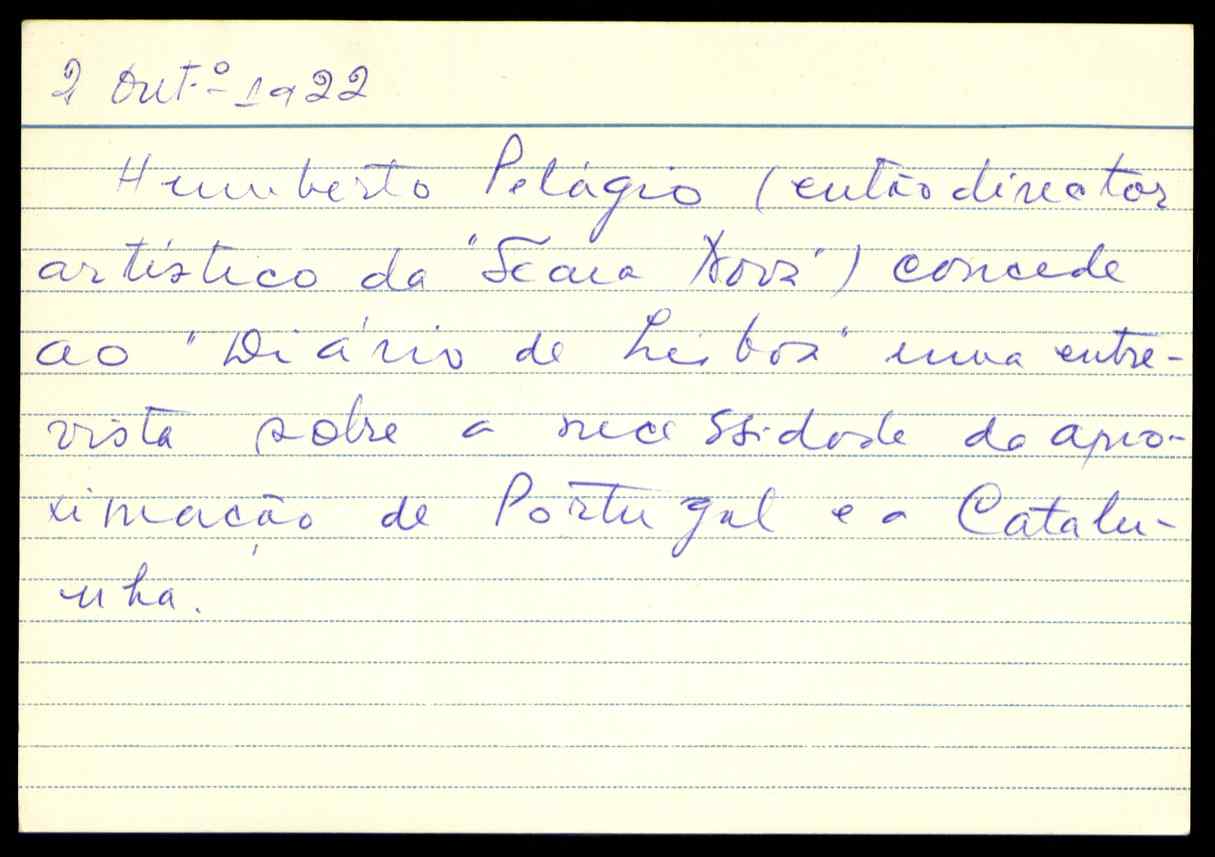 2 Out.º - 1922
Humberto Pelágio (então director
artístico da "Seara Nova") concede
ao "Diário de Lisboa" uma entre-
vista sobre a necessidade da apro-
ximação de Portugal e a Catalu-
nha.